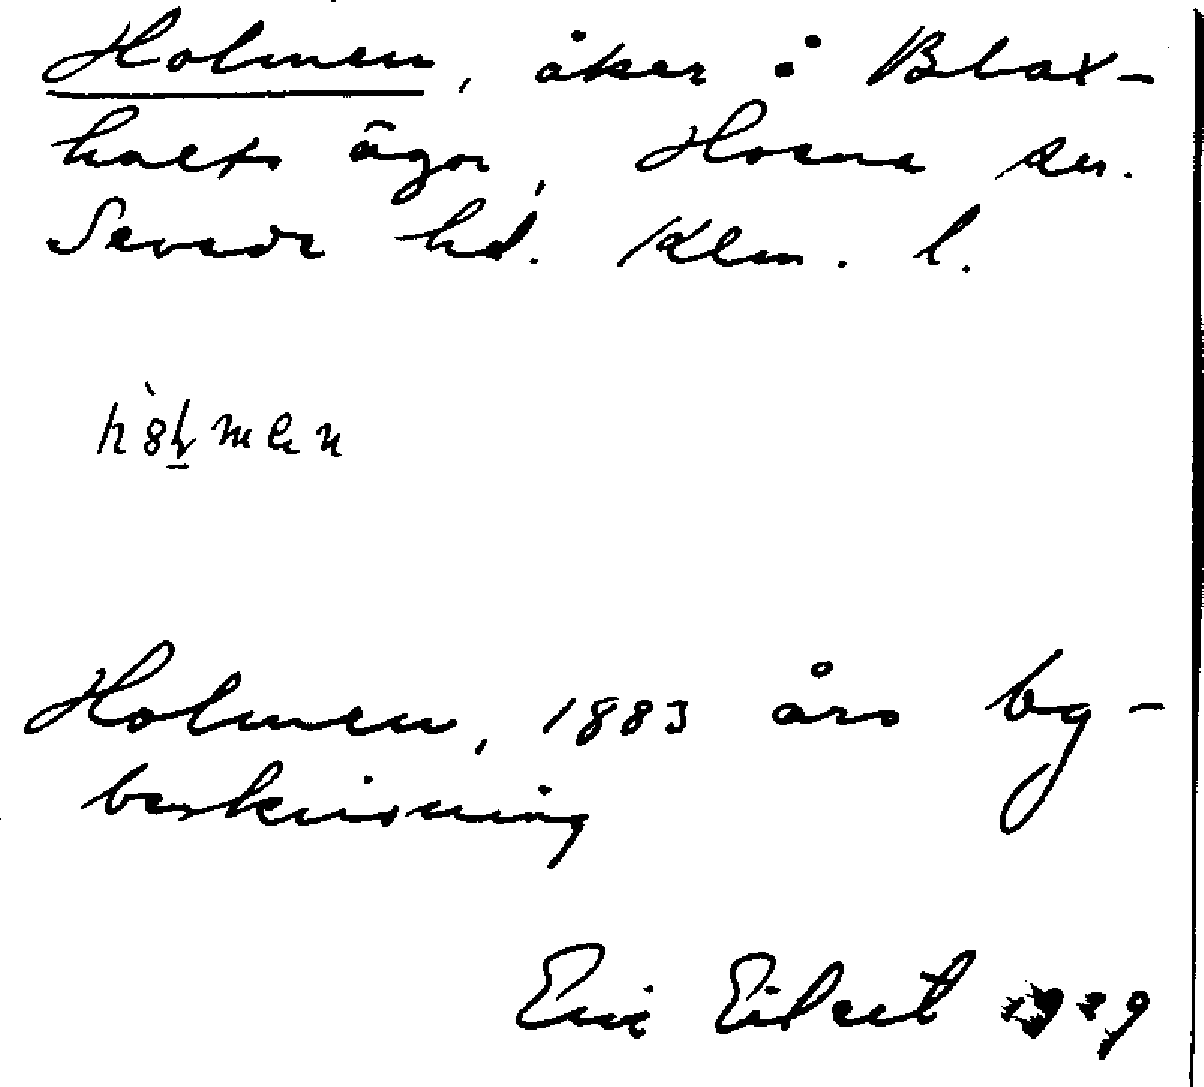 Holmen, åker å Blax-
hults ägor, Hvena sn.
Sevede hd. Klm. l.
Holmen, 1883 års by-
beskrivning
Eric